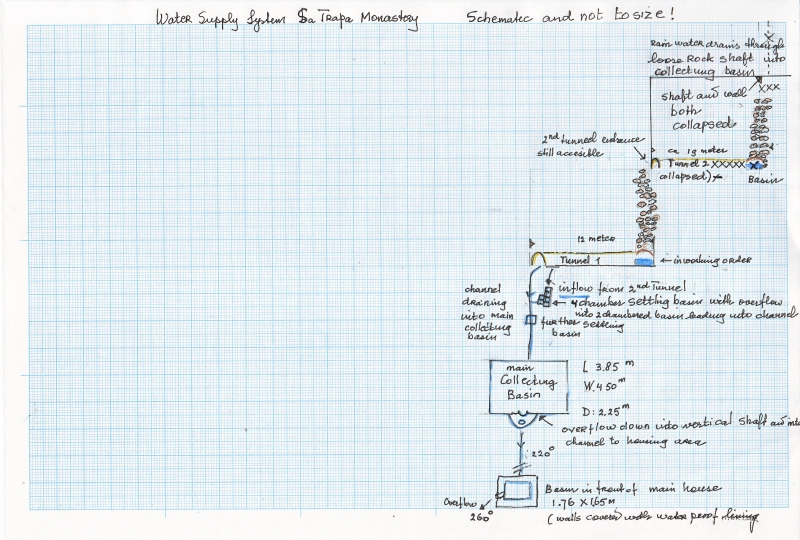 Water Supply System Sa Trapa Monastery Schematic and not to size!
Rain water drains through
loose Rock shaft into
collecting basin
XXX
shaft and well
both
collapsed
2nd tunnel entrance
still accesible
ca 19 meter
Tunnel 2 XXXXX X
collapsed)
Basin
12 meter
Tunnel 1
← in working order
channel
draining
into main
collecting
basin
inflow from 2nd Tunnel
4 chamber settling basin with overflow
into 2 chambered basin leading into channel
further
settling
basin
main
Collecting
Basin
L 3.85 m
W. 4.50 m
D: 2.25 m
overflow down into vertical shaft and into
channel to housing area
220°
Overflow
260°
Basin in front of main house
1.76 X 1.65 m
(walls covered with water proof lining